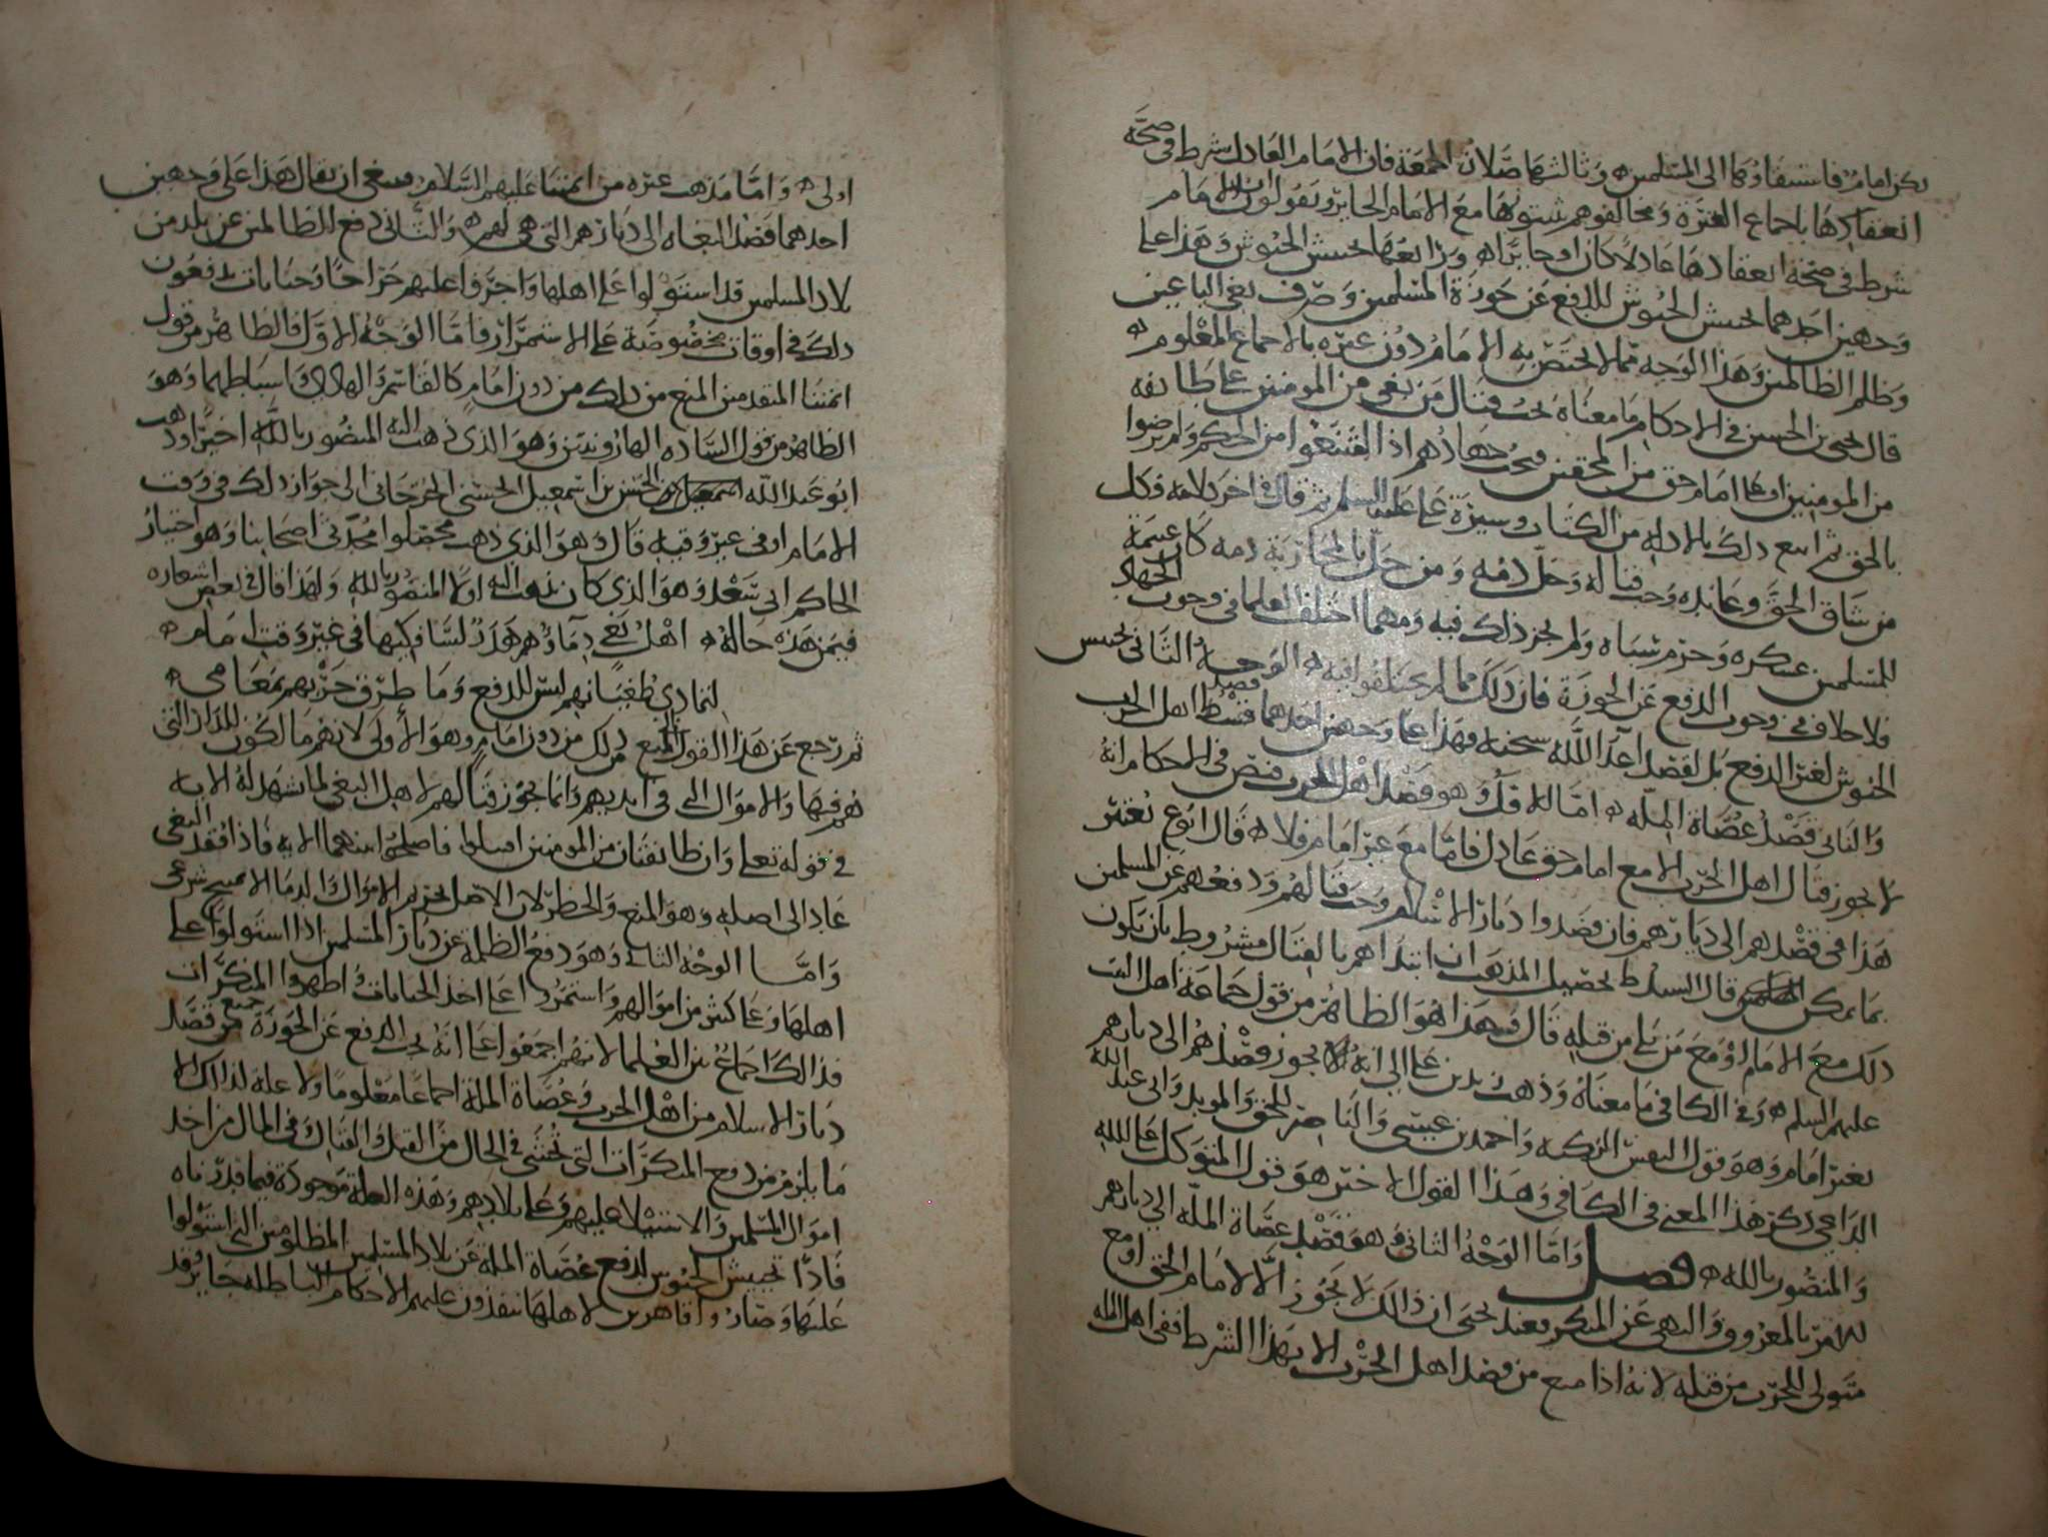 يكن امام فاستيفاؤها الى المسلمين وثالثها صلاة الجمعة فان الامام العادل شرط في صحة
انعقادها باجماع العترة ومخالفوهم يثبتونها مع الامام الجائر ويقولون ان الامام
شرط في صحة انعقادها عادلا كان او جائرا ورابعها تجييش الجيوش وهذا على
وجهين احدهما تجييش الجيوش للدفع عن حوزة المسلمين وصرف بغي الباغين
وظلم الظالمين وهذا الوجه مما لا يختص به الامام دون غيره بالاجماع المعلوم
قال يحيى بن الحسين في الاحكام ما معناه يجب قتال من بغى من المومنين على طائفة
من المومنين او على امام حق من المحقين ويجب جهادهم اذا امتنعوا من الحكم ولم يرضوا
بالحق ثم اتبع ذلك بالادلة من الكتاب وسيرة علي عليه السلم ثم قال في اخر كلامه فكل
من شاق الحق وعانده وجب قتاله وحل دمه ومن حل بالمحاربة دمه كان غنيمة
للمسلمين عسكره وحرم سباه ولم يجز ذلك فيه ومهما اختلف العلما في وجوب الجهاد
فلا خلاف في وجوب الدفع عن الحوزة فان ذلك مما لم يختلفوا فيه الوجه الثاني تجييش
الجيوش لغير الدفع بل لقصد اعدا الله سبحنه فهذا على وجهين احدهما قصد اهل الحرب
والثاني قصد عصاة الملة اما الاول وهو قصد اهل الحرب فنص في الاحكام انه
لا يجوز قتال اهل الحرب الا مع امام حق عادل فاما مع غير امام فلا قال ابو ع يعتبر
هذا في قصدهم الى ديارهم فان قصدوا ديار الاسلام وجب قتالهم ودفعهم عن المسلمين
بما يمكن قال السيد ط تحصيل المذهب ان ابتداهم بالقتال مشروط بان يكون
ذلك مع الامام او مع من يلي من قبله قال وهذا هو الظاهر من قول جماعة اهل البيت
عليهم السلم وفي الكافي ما معناه وذهب زيد بن علي الى انه لا يجوز قصدهم الى ديارهم
بغير امام وهو قول النفس الزكية واحمد بن عيسى والناصر للحق والمويد وابي عبد الله
الداعي ذكر هذا المعنى في الكافي وهذا القول الاخير هو قول المتوكل على الله
والمنصور بالله فصل واما الوجه الثاني وهو قصد عصاة الملة الى ديارهم
للامر بالمعروف والنهي عن المنكر فعند يحيى ان ذلك لا يجوز الا لامام الحق او مع
متولي للحرب من قبله لانه اذا منع من قصد اهل الحرب الا بهذا الشرط ففي اهل الملة
اولى واما مذهب غيره من ايمتنا عليهم السلام فينبغي ان يقال هذا على وجهين
احدهما قصد البغاه الى ديارهم التي هي لهم والثاني دفع الظالمين عن بلد من
بلاد المسلمين قد استولوا على اهلها واجروا عليهم خراجا وجنايات يدفعون
ذلك في اوقات مخصوصة على الاستمرار فاما الوجه الاول فالظاهر من قول
ايمتنا المتقدمين المنع من ذلك من دون امام كالقاسم والهادي واسباطهما وهو
الظاهر من قول الساده الهارونيين وهو الذي ذهب اليه المنصور بالله اخيرا وذهب
ابو عبد الله الحسن بن اسمعيل الحسني الجرجاني الى جواز ذلك في وقت
الامام او في غير وقته قال وهو الذي ذهب محصلوا محدثي اصحابنا وهو اختيار
الحاكم ابي سعد وهو الذي كان يذهب اليه اولا المنصور بالله ولهذا قال في بعض اشعاره
فيمن هذه حاله اهل بغي دماؤهم هدر لسافكيها في غير وقت امام
لتمادي طغيانهم ليس للدفع وما طرق حزبهم بمقامي
ثم رجع عن هذا القول المنع من ذلك من دون امام وهو الاولى لانهم مالكون للدار التي
هم فيها والاموال التي في ايديهم وانما يجوز قتالهم لاجل البغي لما شهد له الايه
في قوله تعلى وان طائفتان من المومنين اقتتلوا فاصلحوا بينهما الايه فاذا فقد البغي
عاد الى اصله وهو المنع والحظر لان الاصل تحريم الاموال والدما الا لمبيح شرعي
واما الوجه الثاني وهو دفع الظلمة عن ديار المسلمين اذا استولوا على
اهلها وعلى كثير من اموالهم واستمروا على اخذ الجبايات واظهروا المنكرات
فذلك اجماع بين العلما لانهم اجمعوا على انه يجب الدفع عن الحوزة جميع من قصد
ديار الاسلام من اهل الحرب وعصاة الملة اجماعا معلوما ولا علة لذلك الا
ما يلزم من دفع المنكرات التي تخشى في الحال من القتل والقتال وفي المال من اخذ
اموال المسلمين والاستيلا عليهم وعلى بلادهم وهذه العلة موجودة فيما قدرناه
فاذا تجييش الجيوش لدفع عصاة الملة عن بلاد المسلمين المظلومين التي استولوا
عليها وصاروا قاهرين لاهلها ينفذون عليهم الاحكام الباطله جايز قد